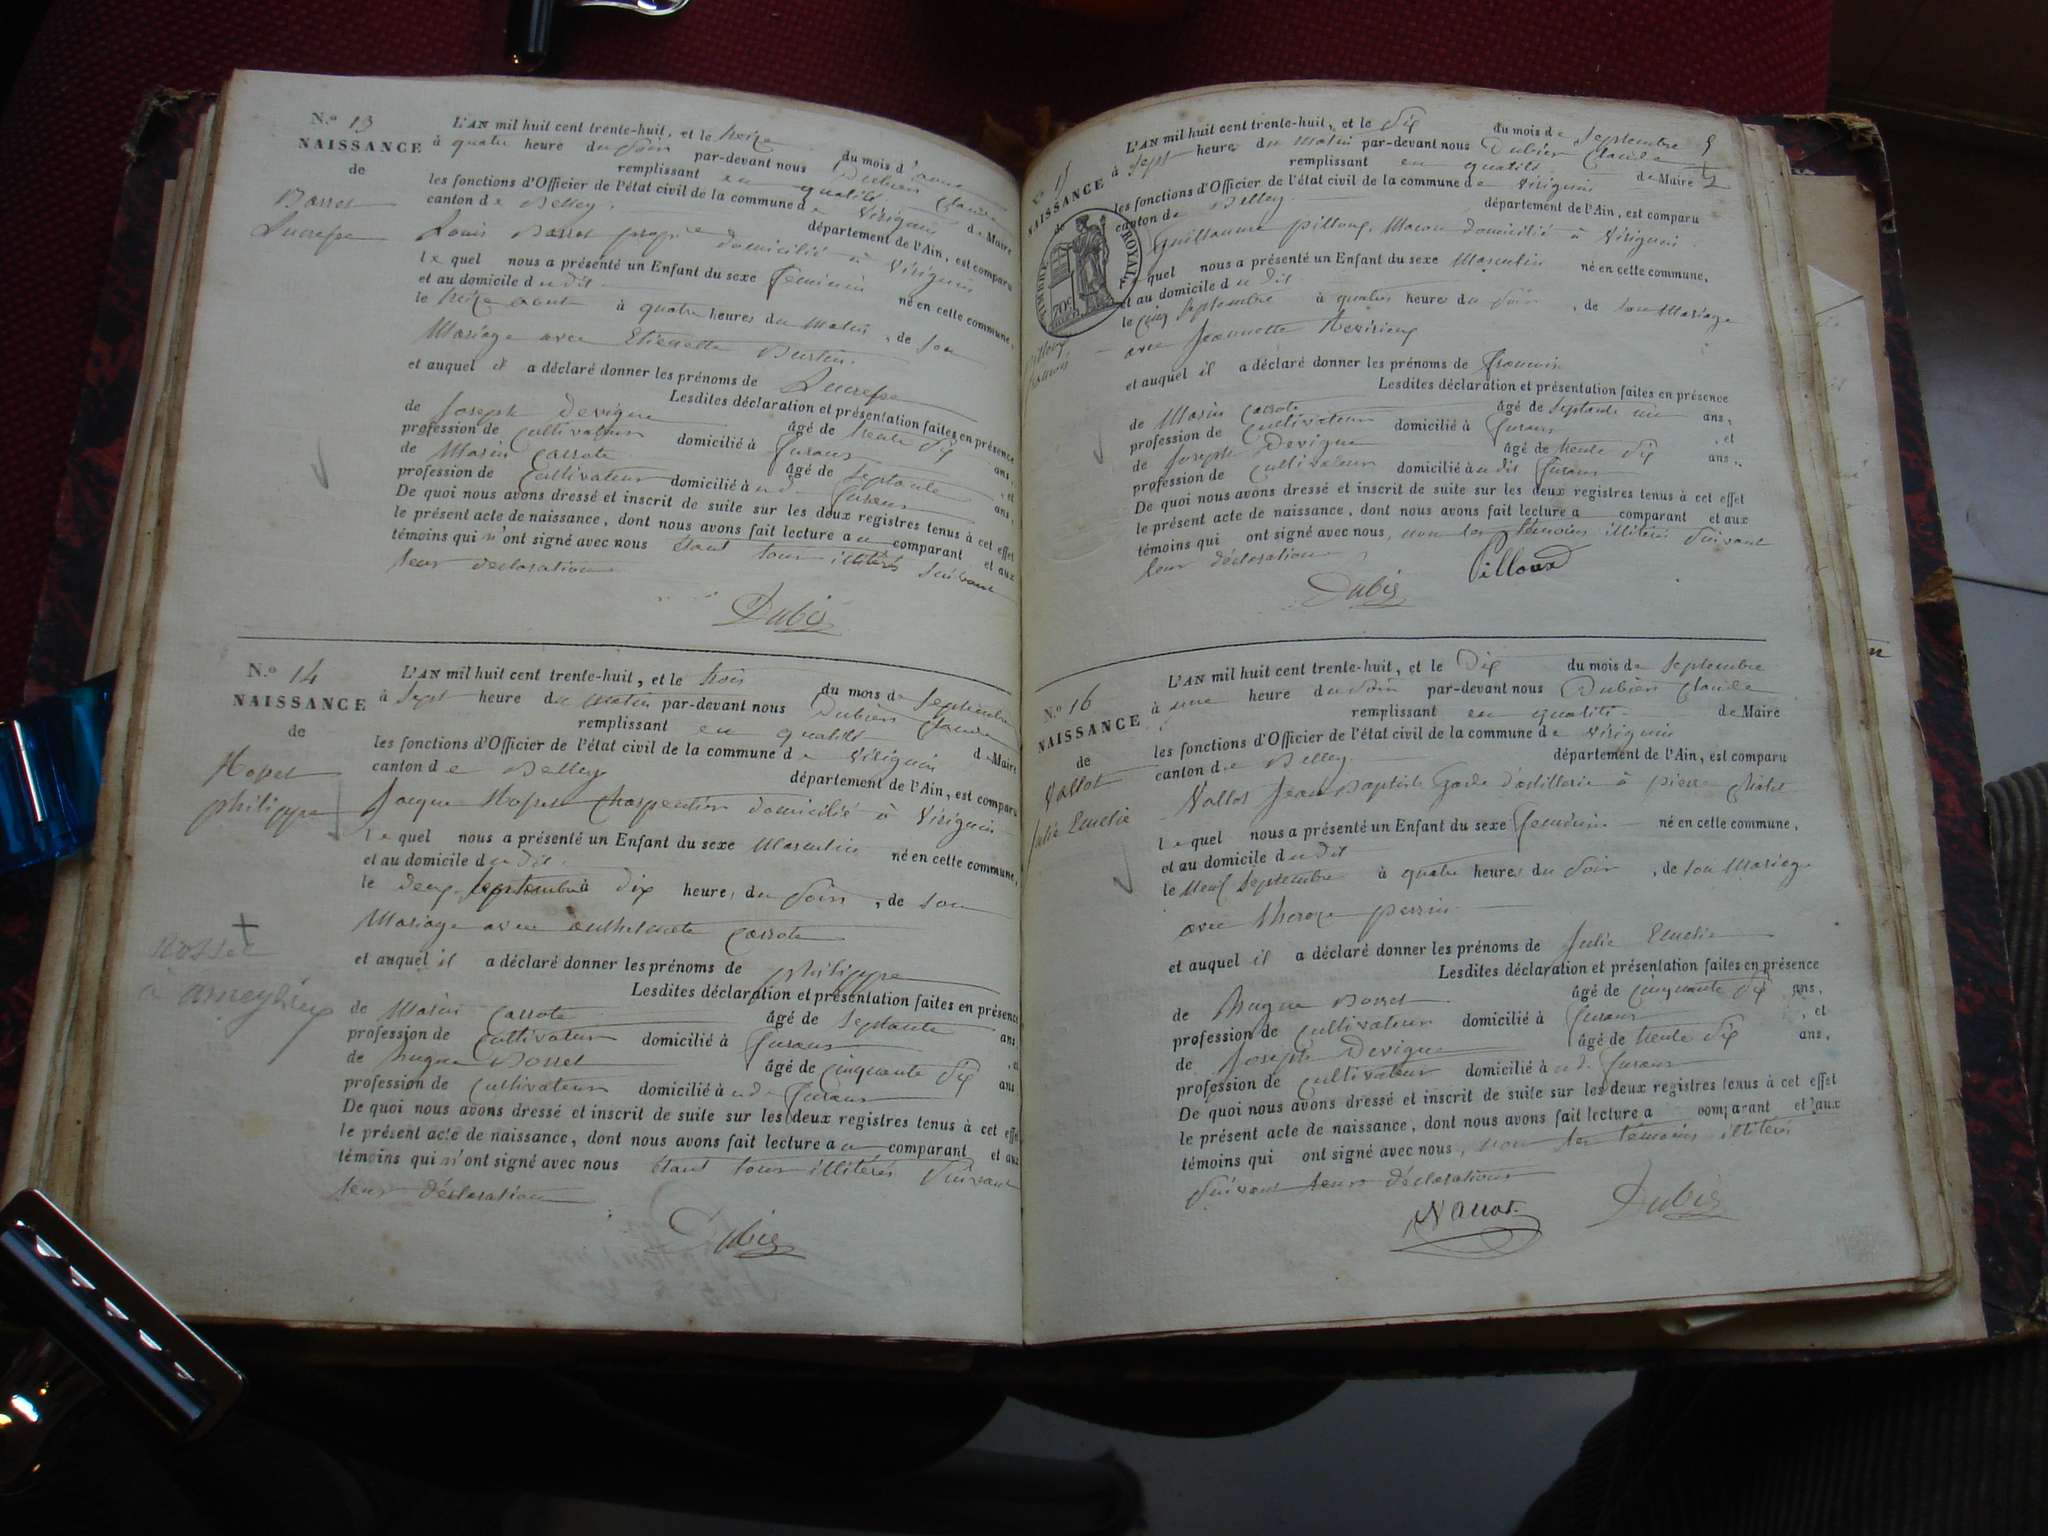 N.o 13
NAISSANCE
de
Borret
Lucresse
L'AN mil huit cent trente-huit, et le treize du mois d'aout
à quatre heure du Soir par-devant nous Dubien Claude
remplissant en qualité de Maire
les fonctions d'Officier de l'état civil de la commune de Virignin
canton de Belley. département de l'Ain, est comparu
Louis Borret propre domicilié à Virignin
lequel nous a présenté un Enfant du sexe féminin né en cette commune,
et au domicile du dit
le treize aout à quatre heures du matin, de son
Mariage avec Etiennette
et auquel il a déclaré donner les prénoms de Lucresse
Lesdites déclaration et présentation faites en présence
de Joseph Devigne âgé de trente Six ans,
profession de Cultivateur domicilié à furans, et
de Marin Carrote âgé de Septante ans,
profession de Cultivateur domicilié à u d. furans
De quoi nous avons dressé et inscrit de suite sur les deux registres tenus à cet effet
le présent acte de naissance, dont nous avons fait lecture au comparant et aux
témoins qui n'ont signé avec nous étant tous illitérés Suivant
leur déclaration
Dubien
N.o 14
NAISSANCE
de
philippe
Rosset
à ameyzieu
L'AN mil huit cent trente-huit, et le trois du mois de Septembre
à Sept heure du matin par-devant nous Dubien Claude
remplissant en qualité de Maire
les fonctions d'Officier de l'état civil de la commune de Virignin
canton de Belley département de l'Ain, est comparu
Jacque Charpentier domicilié à Virignin
lequel nous a présenté un Enfant du sexe Masculin né en cette commune,
et au domicile du dit.
le deux Septembre à dix heures du Soir, de son
Mariage avec anthelmette Carrote
et auquel il a déclaré donner les prénoms de philippe
Lesdites déclaration et présentation faites en présence
de Marin Carrote âgé de Septante ans,
profession de Cultivateur domicilié à furans, et
de hugue Borret âgé de Cinquante Six ans
profession de Cultivateur domicilié à u d. furans
De quoi nous avons dressé et inscrit de suite sur les deux registres tenus à cet effet
le présent acte de naissance, dont nous avons fait lecture au comparant et aux
témoins qui n'ont signé avec nous étant tous illitérés Suivant
leur déclaration
Dubien
5
N.o 15
NAISSANCE
de
TIMBRE ROYAL
70c
pilloux
francois
L'AN mil huit cent trente-huit, et le Dix du mois de Septembre
à Sept heure du Matin par-devant nous Dubien Claude
remplissant en qualité de Maire
les fonctions d'Officier de l'état civil de la commune de Virignin
canton de Belley. département de l'Ain, est comparu
Guillaume pilloux, Macon domicilié à Virignin
lequel nous a présenté un Enfant du sexe Masculin né en cette commune,
et au domicile du dit.
le Cinq Septembre à quatre heures du Soir, de son Mariage
avec Jeannette
et auquel il a déclaré donner les prénoms de francois
Lesdites déclaration et présentation faites en présence
de Marin Carrote âgé de Septante un ans,
profession de Cultivateur domicilié à furans, et
de Joseph Devigne âgé de trente Six ans,
profession de Cultivateur domicilié à u dit furans
De quoi nous avons dressé et inscrit de suite sur les deux registres tenus à cet effet
le présent acte de naissance, dont nous avons fait lecture a comparant et aux
témoins qui ont signé avec nous, non les témoins illitérés Suivant
leur déclaration
Dubien Pilloux
N.o 16
NAISSANCE
de
Vallot
Julie Emelie
L'AN mil huit cent trente-huit, et le Dix du mois de Septembre
à une heure du Soir par-devant nous Dubien Claude
remplissant en qualité de Maire
les fonctions d'Officier de l'état civil de la commune de Virignin
canton de Belley. département de l'Ain, est comparu
Vallot Jean Baptiste Garde d'artillerie à pierre Châtel
lequel nous a présenté un Enfant du sexe feminin né en cette commune,
et au domicile du dit
le Neuf Septembre à quatre heures du Soir, de son Mariage
avec therese perrin
et auquel il a déclaré donner les prénoms de Julie Emelie
Lesdites déclaration et présentation faites en présence
de hugue Borret âgé de Cinquante Six ans,
profession de Cultivateur domicilié à furans, et
de Joseph Devigne âgé de trente Six ans,
profession de Cultivateur domicilié à u d. furans
De quoi nous avons dressé et inscrit de suite sur les deux registres tenus à cet effet
le présent acte de naissance, dont nous avons fait lecture a comparant et aux
témoins qui ont signé avec nous, non les témoins illitérés
Suivant leurs déclarations
Vallot. Dubien